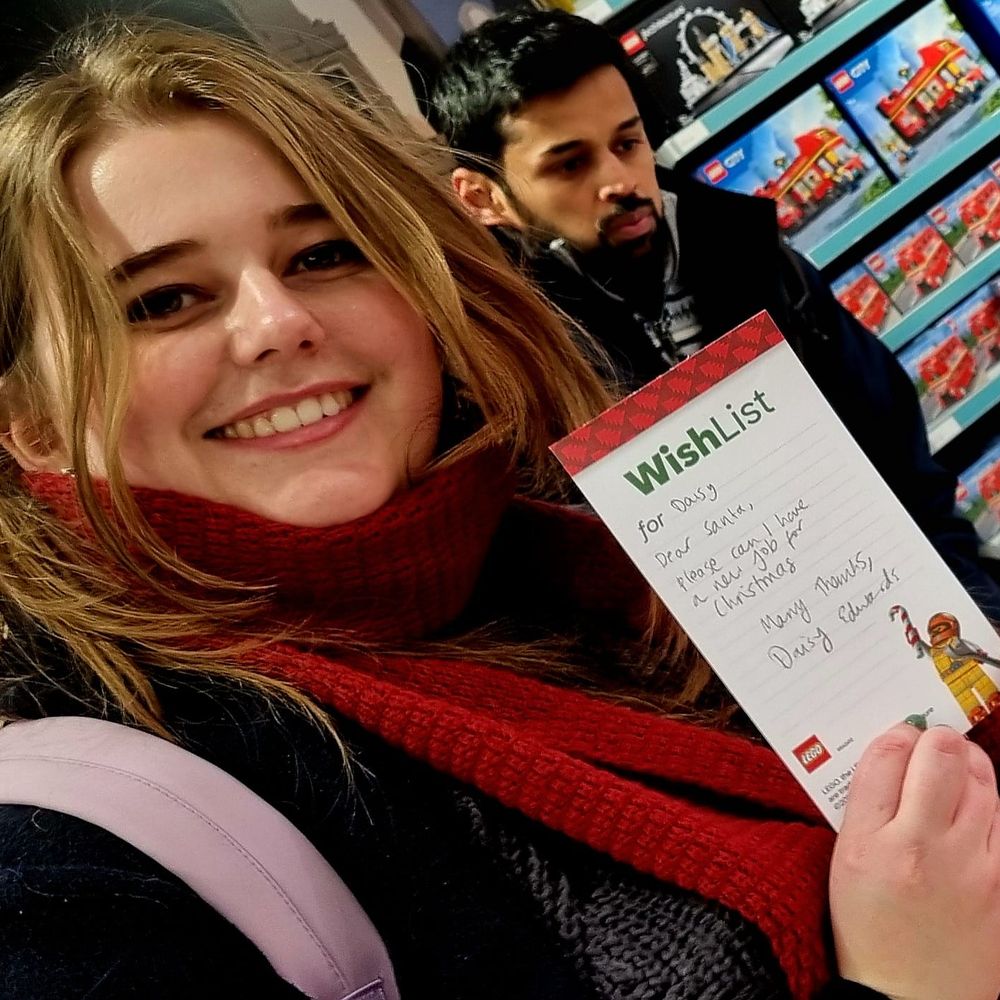 LEGO
Architecture
LEGO
CITY
LEGO
CITY
WishList
for Daisy
Dear Santa,
please can I have
a new job for
Christmas
Many Thanks,
Daisy Edwards
LEGO
LEGO, the
are trad